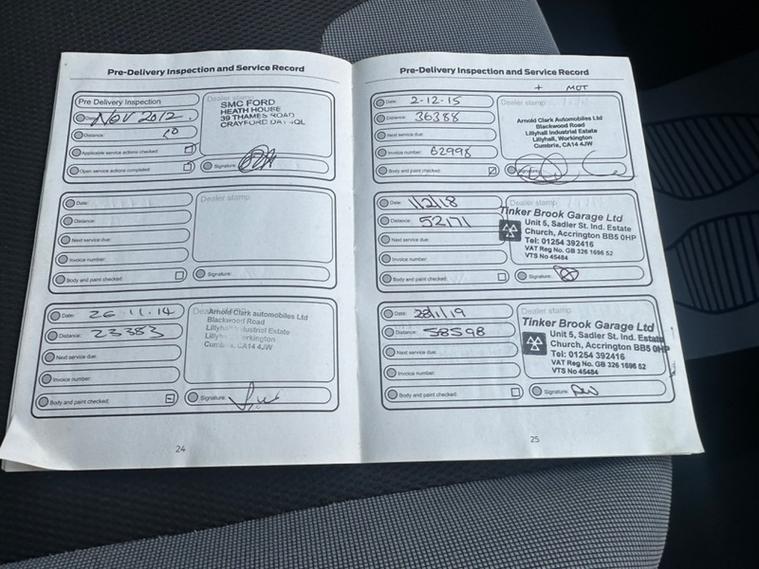 Pre-Delivery Inspection and Service Record
Pre Delivery Inspection
Date: Nov 2012.
Distance: 10
Applicable service actions checked:
Open service actions completed:
Dealer stamp
SMC FORD
HEATH HOUSE
39 THAMES ROAD
CRAYFORD
Signature:
Date:
Distance:
Next service due:
Invoice number:
Body and paint checked:
Dealer stamp
Signature:
Date: 26.11.14
Distance: 23383
Next service due:
Invoice number:
Body and paint checked:
Arnold Clark automobiles Ltd
Blackwood Road
Industrial Estate
Workington
CA14 4JW
Signature:
24
Pre-Delivery Inspection and Service Record
+ MOT
Date: 2-12-15
Distance: 36388
Next service due:
Invoice number: 62998
Body and paint checked:
Dealer stamp
Arnold Clark Automobiles Ltd
Blackwood Road
Lillyhall Industrial Estate
Lillyhall, Workington
Cumbria, CA14 4JW
Date: 1/2/18
Distance: 52171
Next service due:
Invoice number:
Body and paint checked:
Dealer stamp
Tinker Brook Garage Ltd
Unit 5, Sadler St. Ind. Estate
Church, Accrington BB5 0HP
Tel: 01254 392416
VAT Reg No. GB 326 1696 52
VTS No 45484
Signature:
Date: 28/1/19
Distance: 58598
Next service due:
Invoice number:
Body and paint checked:
Dealer stamp
Tinker Brook Garage Ltd
Unit 5, Sadler St. Ind. Estate
Church, Accrington BB5 0HP
Tel: 01254 392416
VAT Reg No. GB 326 1696 52
VTS No 45484
Signature:
25